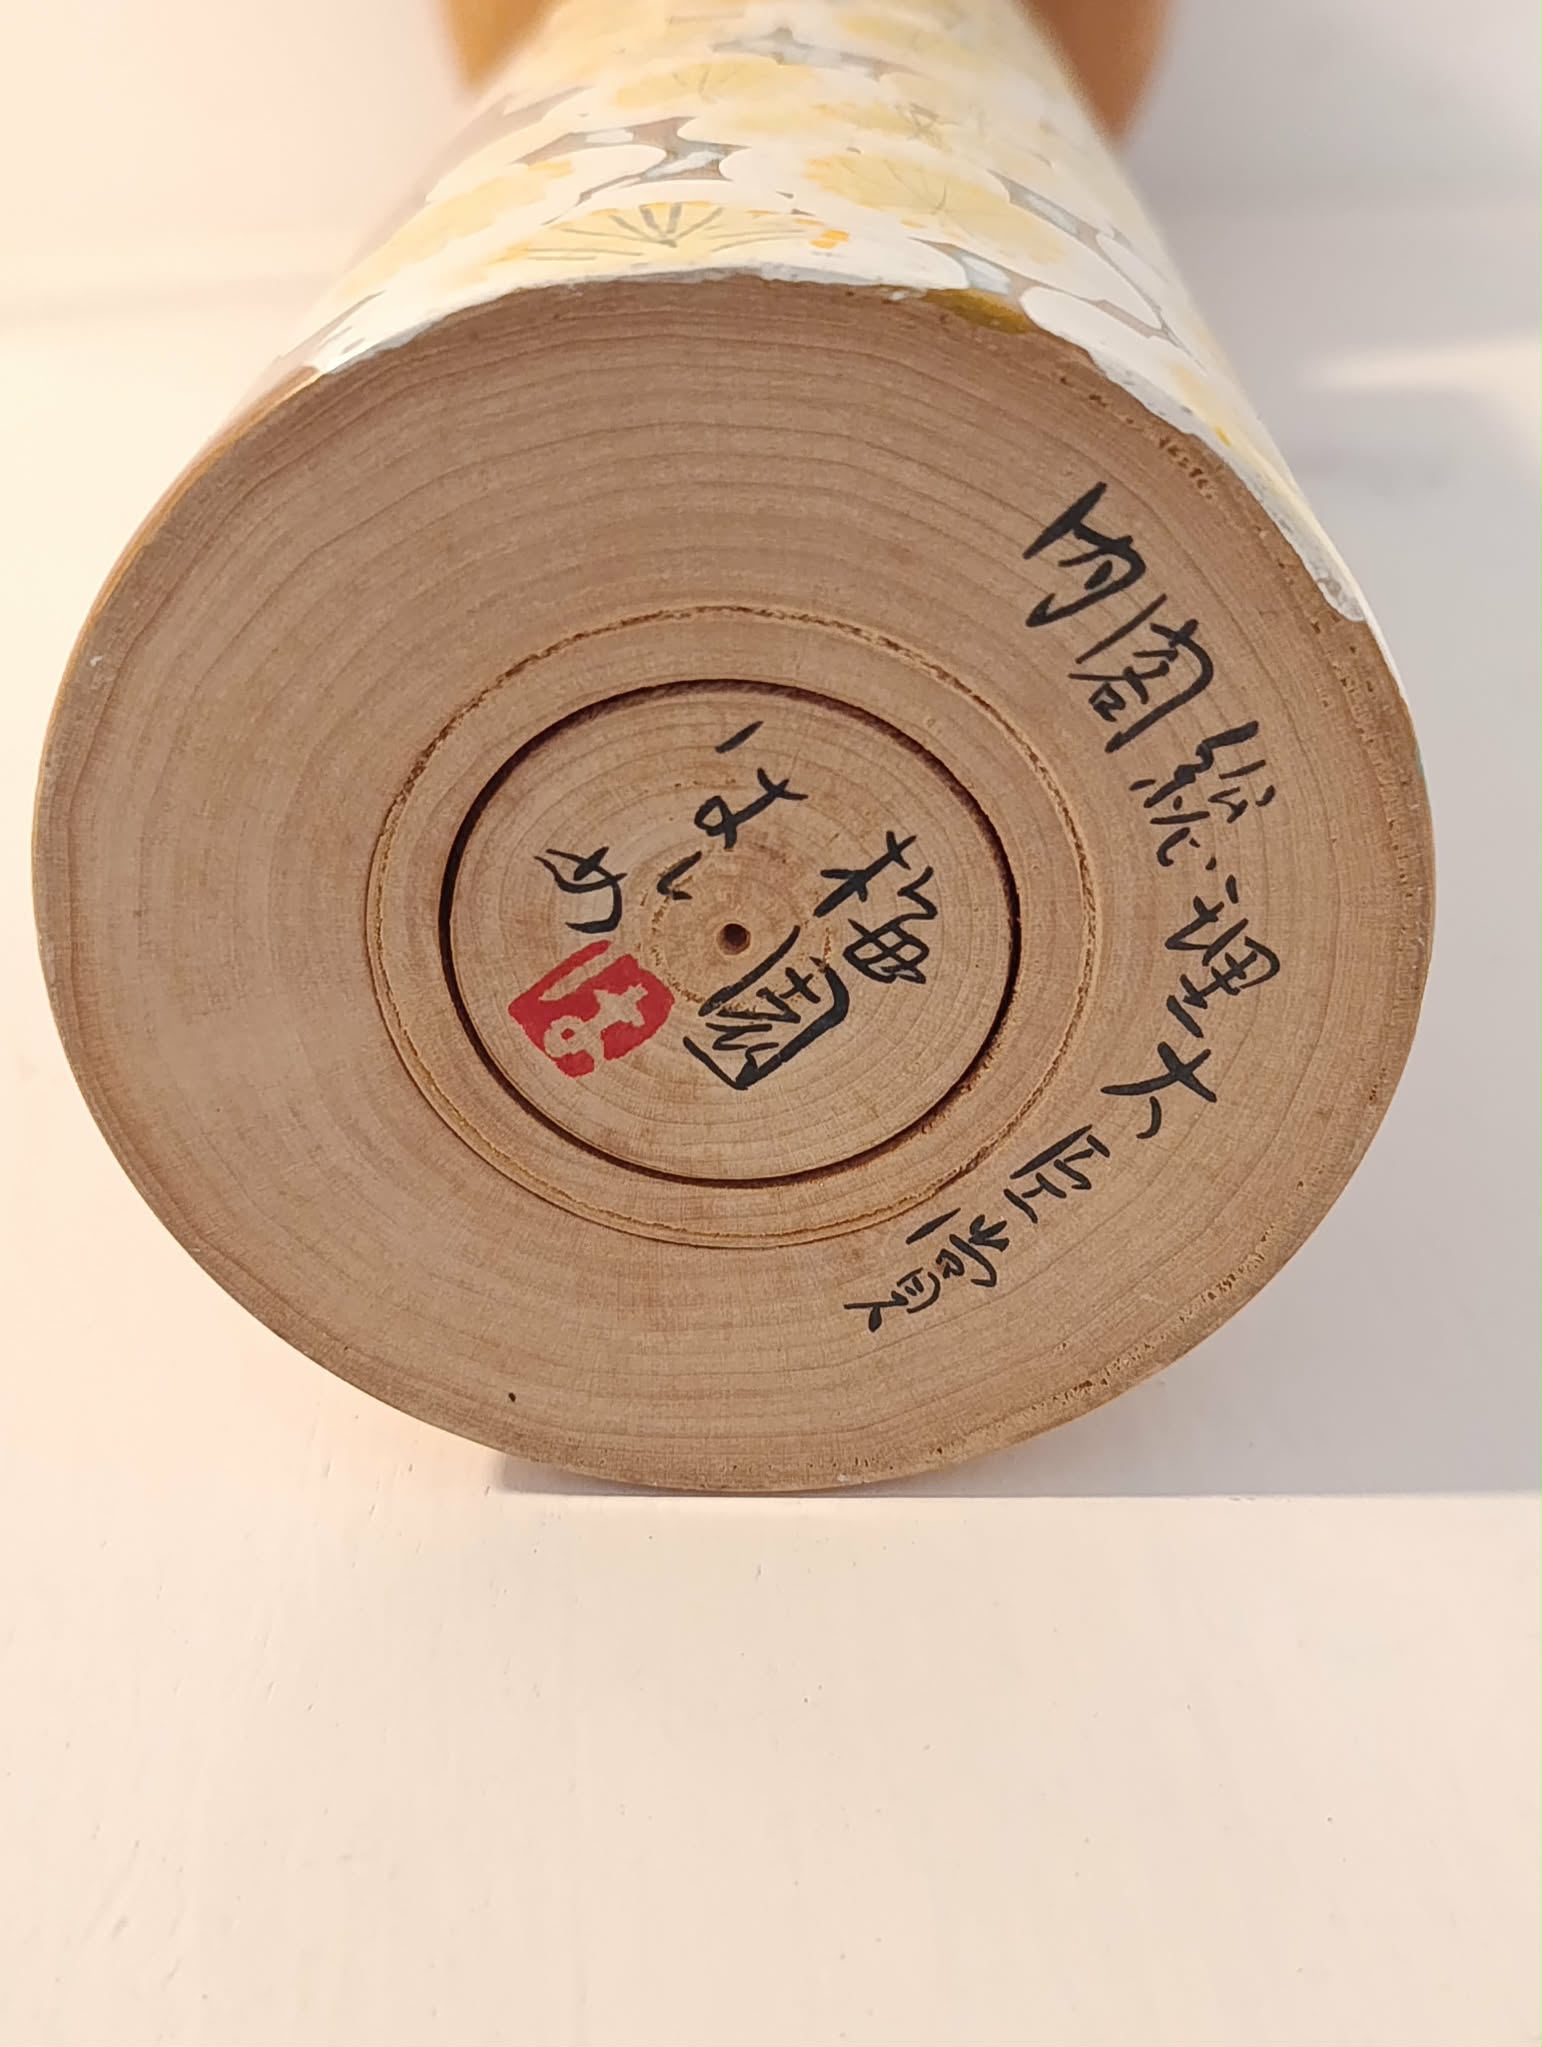 内閣総理大臣賞
梅園
はじめ
は